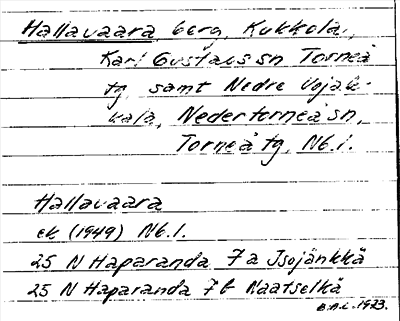 Hallavaara, berg, Kukkola,
Karl Gustavs sn Torneå
tg, samt Nedre Vojak-
kala, Nedertorneå sn,
Torneå tg, Nb.l.
Hallavaara
ek (1949) Nb.l.
25 N Haparanda 7a Isojänkkä
25 N Haparanda 7b Naatselkä
B.A.i. 1923.